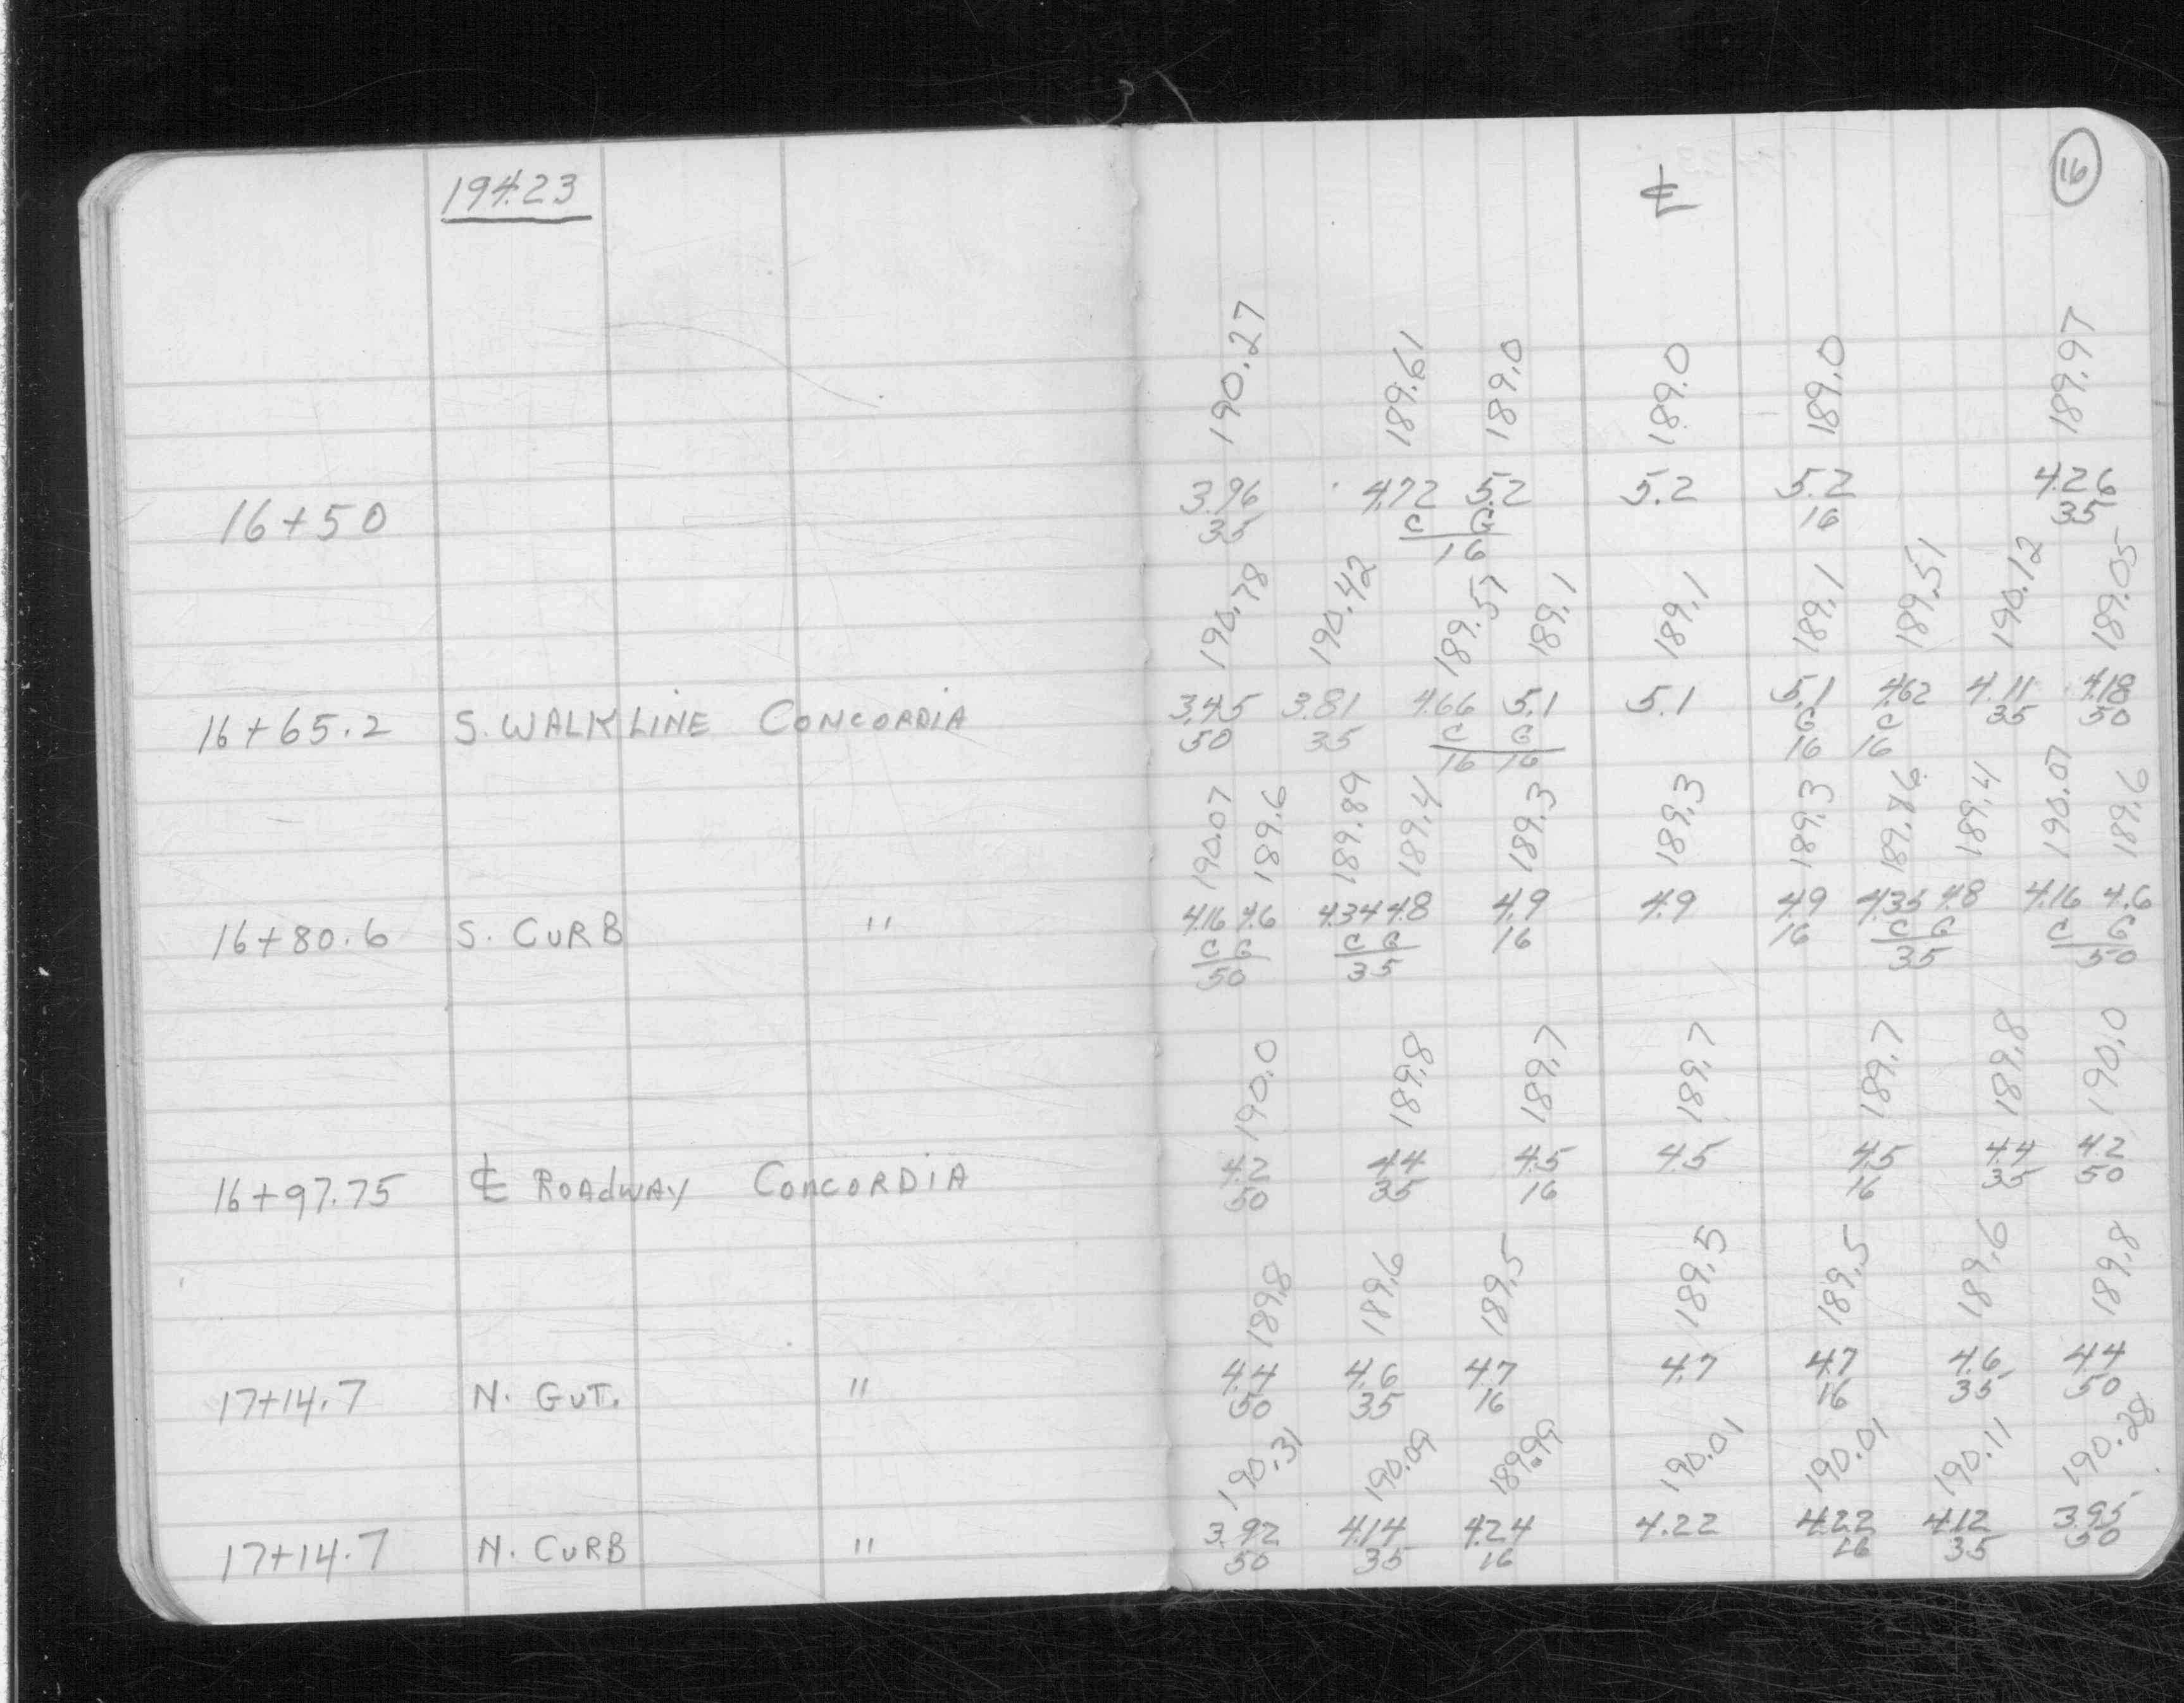 194.23 ℄ 16
190.27 189.61 189.0 189.0 189.0 189.97
16+50 3.96 4.72 5.2 5.2 5.2 4.26
35 C G 16 35
16
190.78 190.42 189.57 189.1 189.1 189.1 189.51 190.12 189.05
16+65.2 S. WALK LINE CONCORDIA 3.45 3.81 4.66 5.1 5.1 5.1 4.62 4.11 4.18
50 35 C G G C 35 50
16 16 16 16
190.07 189.6 189.89 189.4 189.3 189.3 189.3 189.86 189.4 190.07 189.6
16+80.6 S. CURB " 4.16 4.6 4.34 4.8 4.9 4.9 4.9 4.35 4.8 4.16 4.6
C G C G 16 16 C G C G
50 35 35 50
190.0 189.8 189.7 189.7 189.7 189.8 190.0
16+97.75 ℄ ROADWAY CONCORDIA 4.2 4.4 4.5 4.5 4.5 4.4 4.2
50 35 16 16 35 50
189.8 189.6 189.5 189.5 189.5 189.6 189.8
17+14.7 N. GUT. " 4.4 4.6 4.7 4.7 4.7 4.6 4.4
50 35 16 16 35 50
190.31 190.09 189.99 190.01 190.01 190.11 190.28
17+14.7 N. CURB " 3.92 4.14 4.24 4.22 4.22 4.12 3.95
50 35 16 16 35 50